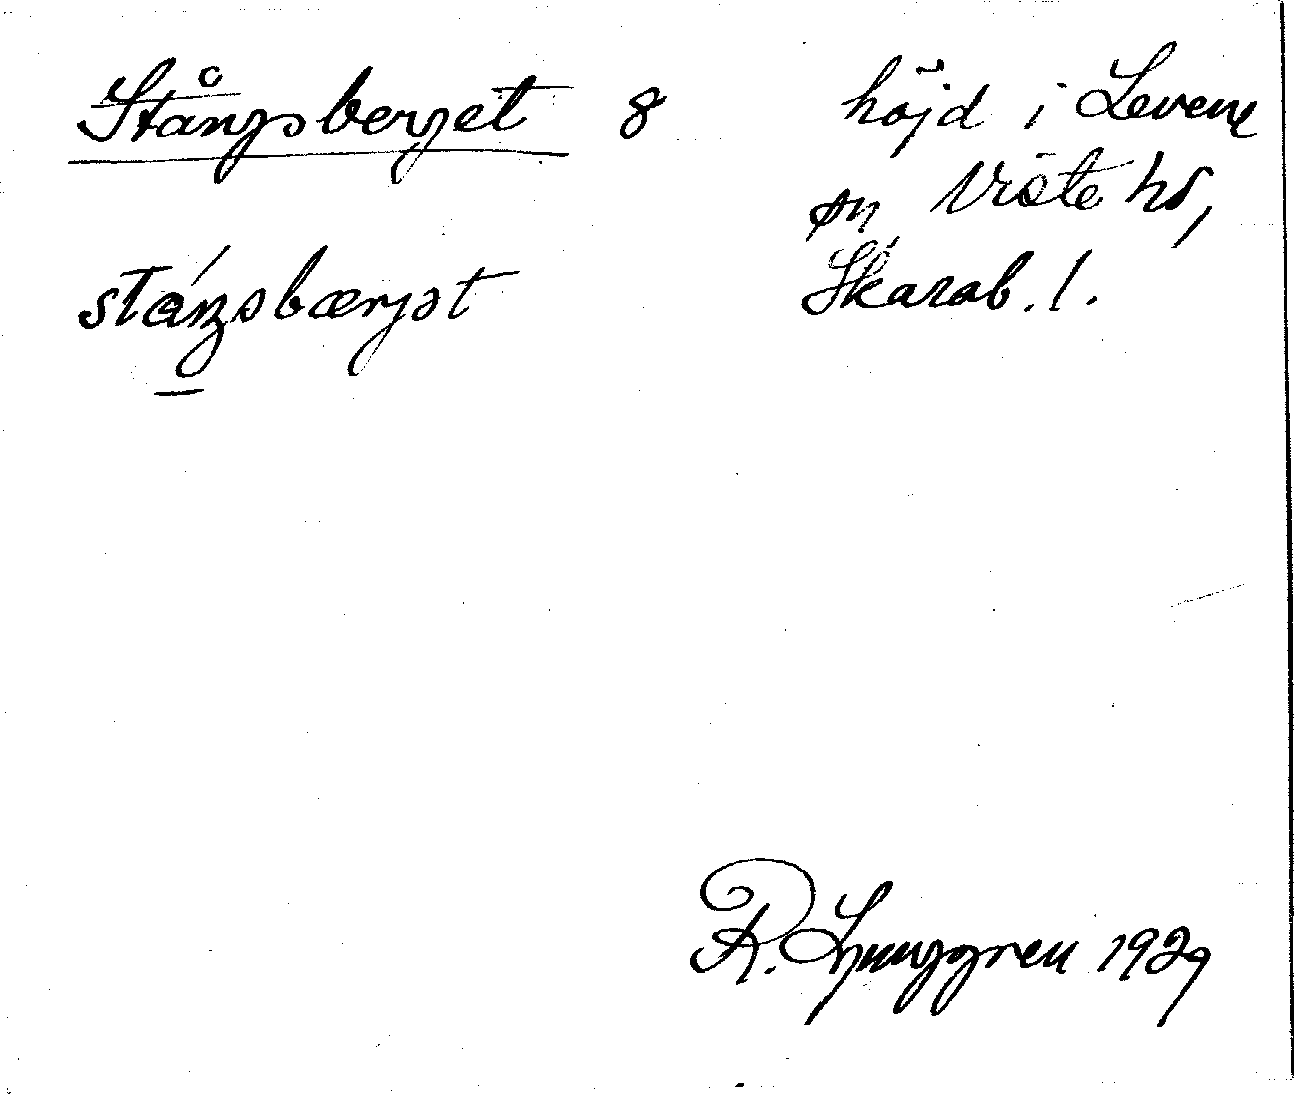 Stångsberget 8 höjd i Levene
sn Viste hd,
stáŋsbærjət Skarab. l.
R. Ljunggren 1929